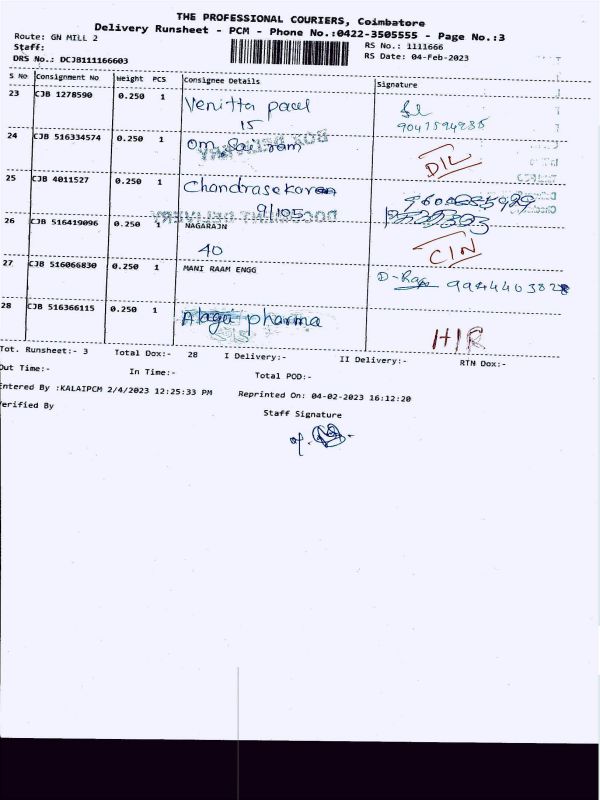 THE PROFESSIONAL COURIERS, Coimbatore
Delivery Runsheet - PCM - Phone No.:0422-3505555 - Page No.:3
Route: GN MILL 2
RS No.: 1111666
Staff:
RS Date: 04-Feb-2023
DRS No.: DCJB111166603
S No Consignment No Weight PCS Consignee Details Signature
23 CJB 1278590 0.250 1 Venitta paul
15
9047594235
24 CJB 516334574 0.250 1 Om Sai ram
DIL
25 CJB 4011527 0.250 1 Chandrasekaran
9/105
26 CJB 516419096 0.250 1 NAGARAJN
40
CIN
27 CJB 516066830 0.250 1 MANI RAAM ENGG
D-Raj 9944403828
28 CJB 516366115 0.250 1 Alagu pharma
HIR
Tot. Runsheet:- 3 Total Dox:- 28 I Delivery:- II Delivery:- RTN Dox:-
Out Time:- In Time:- Total POD:-
Entered By :KALAIPCM 2/4/2023 12:25:33 PM Reprinted On: 04-02-2023 16:12:20
Verified By Staff Signature